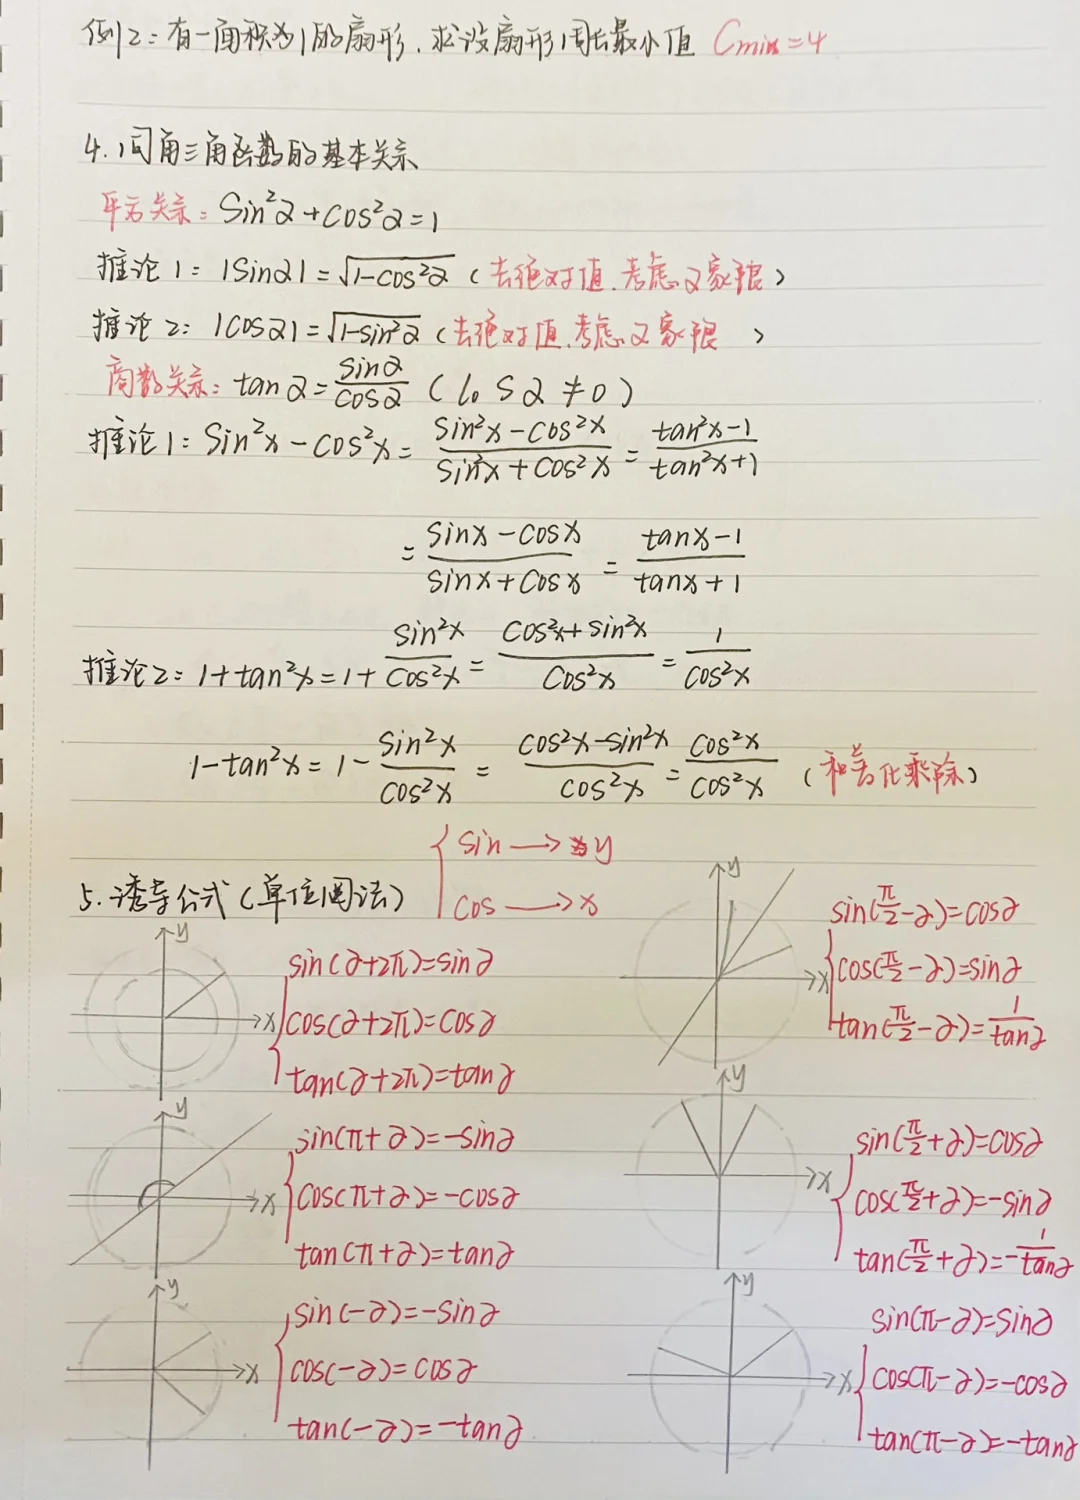 例2：有一面积为1的扇形，求该扇形周长最小值 Cmin=4
4.同角三角函数的基本关系
平方关系：Sin²α+cos²α=1
推论1：|Sinα|=√(1-cos²α)（去绝对值，考虑又象限）
推论2：|cosα|=√(1-sin²α)（去绝对值，考虑又象限）
商数关系：tanα=sinα/cosα（cosα≠0）
推论1：Sin²x-cos²x=(Sin²x-cos²x)/(Sin²x+cos²x)=(tan²x-1)/(tan²x+1)
=(sinx-cosx)/(sinx+cosx)=(tanx-1)/(tanx+1)
推论2：1+tan²x=1+sin²x/cos²x=(cos²x+sin²x)/cos²x=1/cos²x
1-tan²x=1-sin²x/cos²x=(cos²x-sin²x)/cos²x=cos²x/cos²x（和差化乘除）
5.诱导公式（单位圆法）
sin→y
cos→x
y
x
sin(α+2π)=sinα
cos(α+2π)=cosα
tan(α+2π)=tanα
y
x
sin(π/2-α)=cosα
cos(π/2-α)=sinα
tan(π/2-α)=1/tanα
y
x
sin(π+α)=-sinα
cos(π+α)=-cosα
tan(π+α)=tanα
y
x
sin(π/2+α)=cosα
cos(π/2+α)=-sinα
tan(π/2+α)=-1/tanα
y
x
sin(-α)=-sinα
cos(-α)=cosα
tan(-α)=-tanα
y
x
sin(π-α)=sinα
cos(π-α)=-cosα
tan(π-α)=-tanα